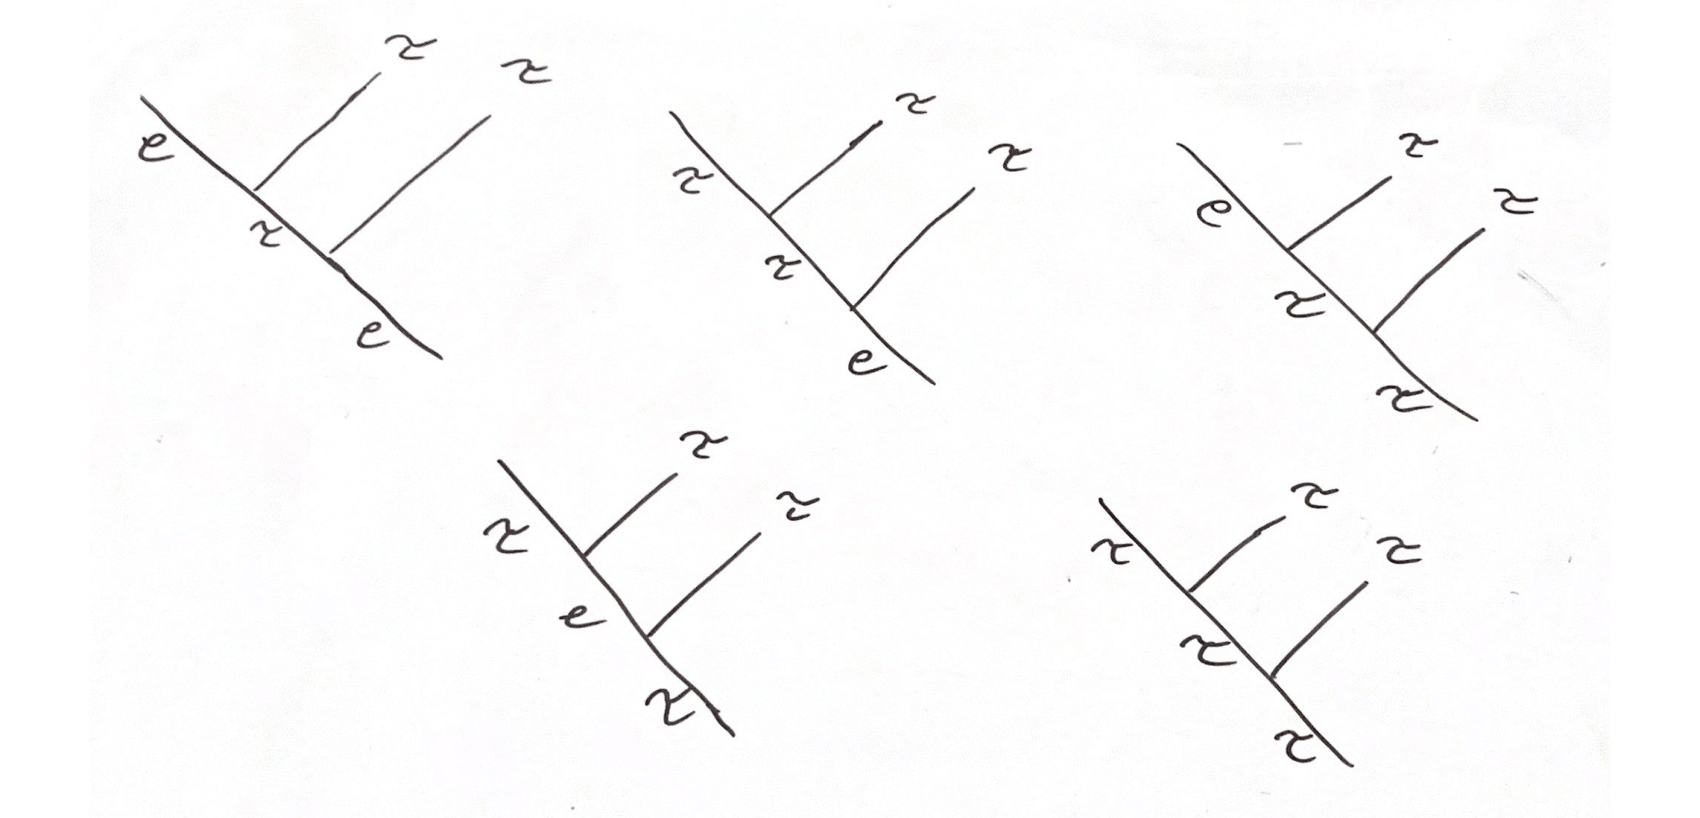 τ
τ
e
τ
e
τ
τ
τ
τ
e
τ
τ
e
τ
τ
τ
τ
τ
e
τ
τ
τ
τ
τ
τ